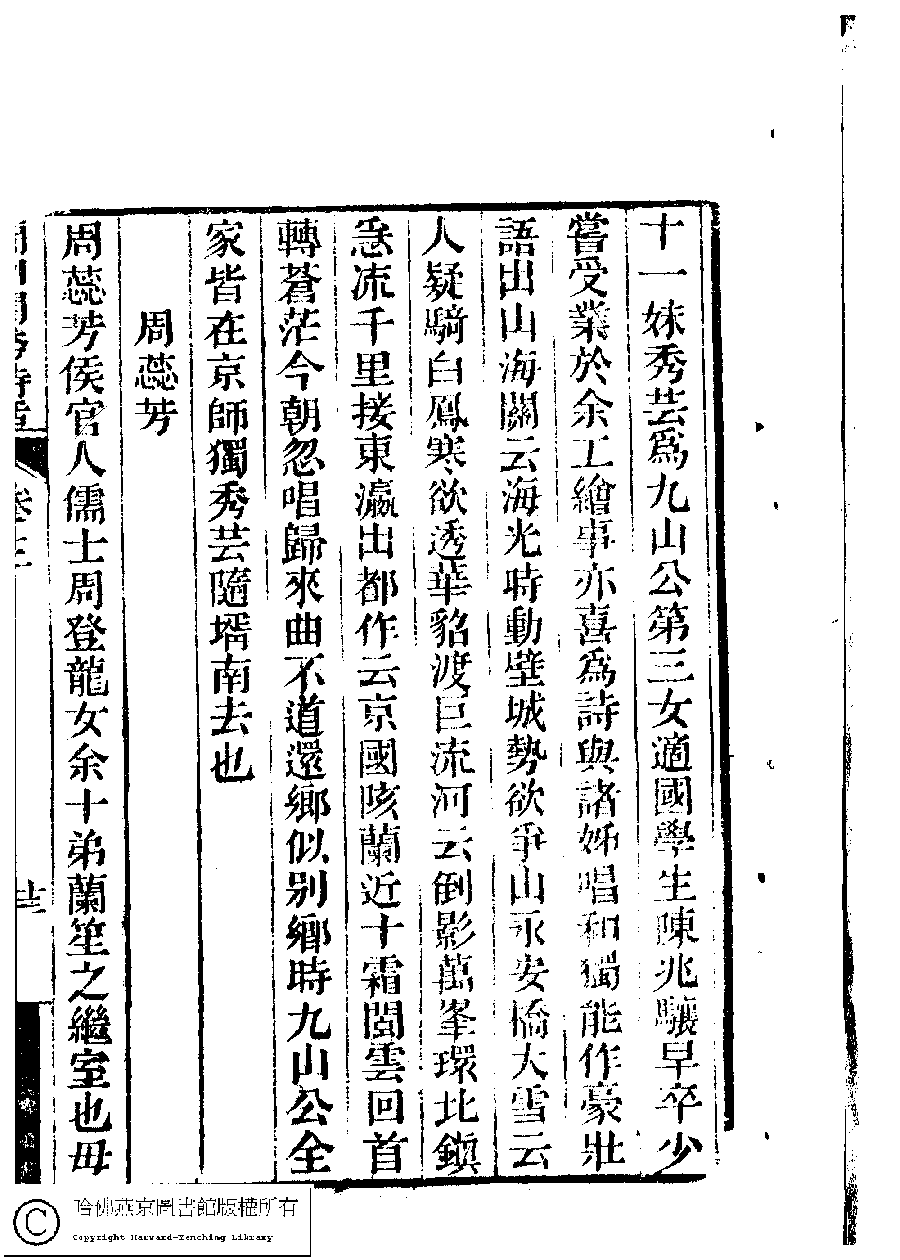 十一妹秀芸爲九山公第三女適國學生陳兆驤早卒少
嘗受業於余工繪事亦喜爲詩與諸姊唱和獨能作豪壯
語出山海關云海光時動壁城勢欲爭山永安橋大雪云
人疑騎白鳳寒欲透華貂渡巨流河云倒影萬峯環北鎭
急流千里接東瀛出都作云京國陔蘭近十霜閩雲回首
轉蒼茫今朝忽唱歸來曲不道還鄉似別鄉時九山公全
家皆在京師獨秀芸隨壻南去也
周蕊芳
周蕊芳侯官人儒士周登龍女余十弟蘭笙之繼室也毋
卷三
廿三
哈佛燕京圖書館版權所有
Copyright Harvard-Yenching Library